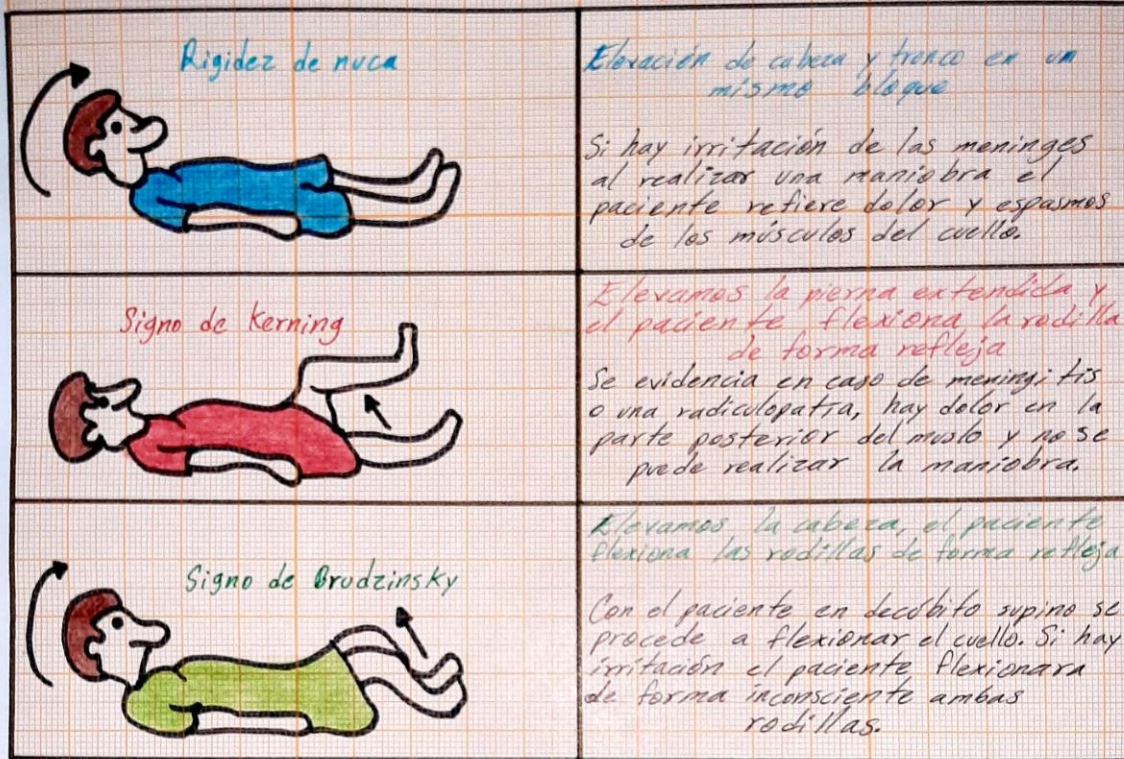 Rigidez de nuca
Elevación de cabeza y tronco en un
mismo bloque
Si hay irritación de las meninges
al realizar una maniobra el
paciente refiere dolor y espasmos
de los músculos del cuello.
Signo de Kerning
Elevamos la pierna extendida y
el paciente flexiona la rodilla
de forma refleja
Se evidencia en caso de meningitis
o una radiculopatía, hay dolor en la
parte posterior del muslo y no se
puede realizar la maniobra.
Signo de Brudzinsky
Elevamos la cabeza, el paciente
flexiona las rodillas de forma refleja
Con el paciente en decúbito supino se
procede a flexionar el cuello. Si hay
irritación el paciente flexionara
de forma inconsciente ambas
rodillas.